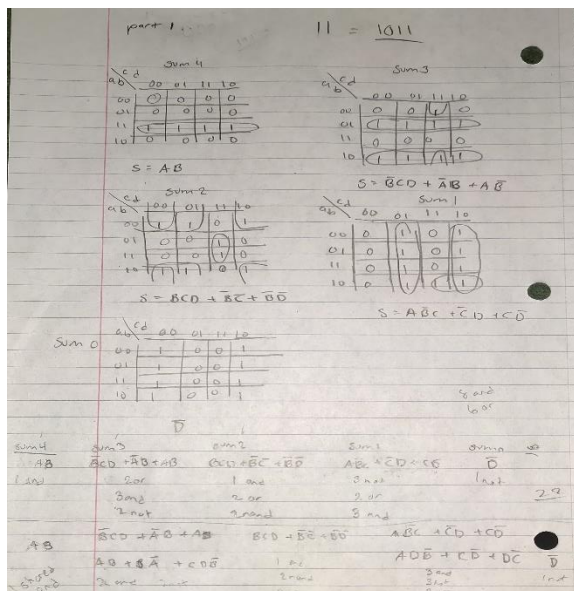 part 1.
11 = 1011
Sum 4
ab cd 00 01 11 10
00 0 0 0 0
01 0 0 0 0
11 1 1 1 1
10 0 0 0 0
S = AB
Sum 3
ab cd 00 01 11 10
00 0 0 1 0
01 1 1 1 1
11 0 0 0 0
10 1 1 1 1
S = B̅CD + A̅B + AB̅
Sum 2
ab cd 00 01 11 10
00 1 1 0 1
01 0 0 1 0
11 0 0 1 0
10 1 1 0 1
S = BCD + B̅C̅ + B̅D̅
Sum 1
ab cd 00 01 11 10
00 0 1 0 1
01 0 1 0 1
11 0 1 0 1
10 0 1 1 1
S = AB̅C + C̅D + CD̅
Sum 0
ab cd 00 01 11 10
00 1 0 0 1
01 1 0 0 1
11 1 0 0 1
10 1 0 0 1
D̅
8 and
6 or
Sum4 sum3 sum2 sum1
AB B̅CD + A̅B + AB BCD + B̅C̅ + B̅D̅ D̅
1 and 2 or 1 and 3 not 1 not
3 and 2 or 2 or
2 not 2 nand 3 and
22
AB B̅CD + A̅B + AB BCD + B̅C̅ + B̅D̅
D̅
1 not